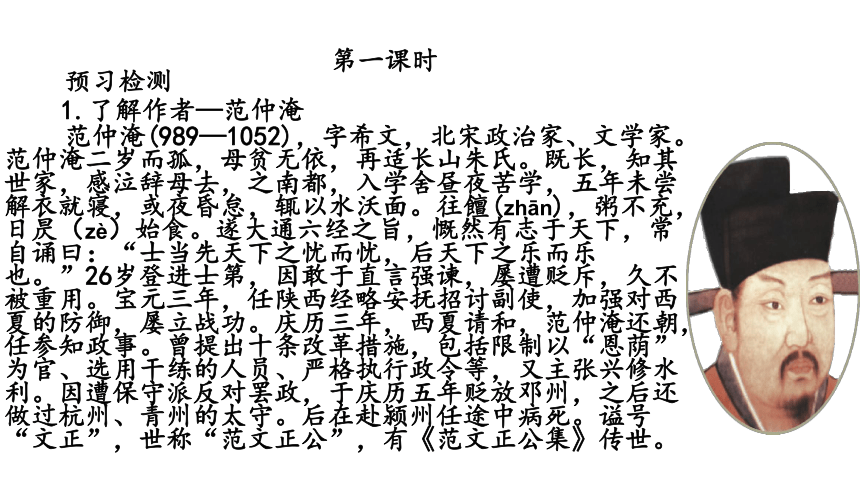 第一课时
预习检测
1.了解作者—范仲淹
范仲淹(989—1052)，字希文，北宋政治家、文学家。
范仲淹二岁而孤，母贫无依，再适长山朱氏。既长，知其
世家，感泣辞母去，之南都，入学舍昼夜苦学，五年未尝
解衣就寝，或夜昏怠，辄以水沃面。往饘(zhān)，粥不充，
日昃（zè）始食。遂大通六经之旨，慨然有志于天下，常
自诵曰：“士当先天下之忧而忧，后天下之乐而乐
也。”26岁登进士第，因敢于直言强谏，屡遭贬斥，久不
被重用。宝元三年，任陕西经略安抚招讨副使，加强对西
夏的防御，屡立战功。庆历三年，西夏请和，范仲淹还朝，
任参知政事。曾提出十条改革措施，包括限制以“恩荫”
为官、选用干练的人员、严格执行政令等，又主张兴修水
利。因遭保守派反对罢政，于庆历五年贬放邓州，之后还
做过杭州、青州的太守。后在赴颍州任途中病死。谥号
“文正”，世称“范文正公”，有《范文正公集》传世。